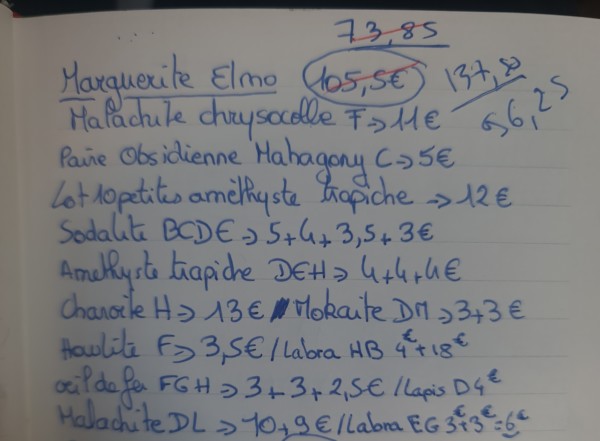 73,85
Marguerite Elmo 105,5€ 137,50
Malachite chrysocolle F → 11€ 66,25
Paire Obsidienne Mahagony C → 5€
Lot 10 petites améthyste trapiche → 12€
Sodalite BCDE → 5+4+3,5+3€
Améthyste trapiche DEH → 4+4+4€
Charoite H → 13€ / Mokaite DM → 3+3€
Howlite F → 3,5€ / Labra HB 4€+18€
oeil de fer FGH → 3+3+2,5€ / Lapis D4€
Malachite DL → 10+9€ / Labra EG 3€+3€=6€